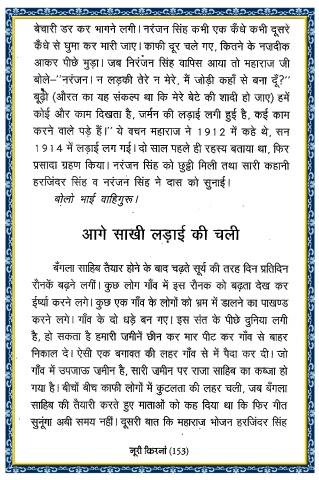 बेचारी डर कर भागने लगी। नरंजन सिंह कभी एक कँधे कभी दूसरे
कँधे से घुमा कर मारी जाए। काफी दूर चले गए, कितने के नजदीक
आकर पीछे मुड़ा। जब निरंजन सिंह वापिस आया तो महाराज जी
बोले-"नरंजन। न लड़की तेरे न मेरे, मैं जोड़ी कहाँ से बना दूँ?"
बूढ़ी (औरत का यह संकल्प था कि मेरे बेटे की शादी हो जाए) हमें
कोई और काम दिखता है, जर्मन की लड़ाई लगी हुई है, कई काम
करने वाले पड़े हैं।" ये वचन महाराज ने 1912 में कहे थे, सन
1914 में लड़ाई लग गई। दो साल पहले ही रहस्य बताया था, फिर
प्रसादा ग्रहण किया। नरंजन सिंह को छुट्टी मिली तथा सारी कहानी
हरजिंदर सिंह व नरंजन सिंह ने दास को सुनाई।
बोलो भाई वाहिगुरू।
आगे साखी लड़ाई की चली
बँगला साहिब तैयार होने के बाद चढ़ते सूर्य की तरह दिन प्रतिदिन
रौनकें बढ़ने लगीं। कुछ लोग गाँव में इस रौनक को बढ़ता देख कर
ईर्ष्या करने लगे। कुछ एक गाँव के लोगों को भ्रम में डालने का पाखण्ड
करने लगे। गाँव के दो धड़े बन गए। इस संत के पीछे दुनिया लगी
है, हो सकता है हमारी जमीनें छीन कर मार पीट कर गाँव से बाहर
निकाल दे। ऐसी एक बगावत की लहर गाँव में पैदा कर दी। जो
गाँव में उपजाऊ ज़मीन है, सारी ज़मीन पर राजा साहिब का कब्जा हो
गया है। बीचों बीच काफी लोगों में कुटलता की लहर चली, जब बँगला
साहिब की तैयारी करते हुए माताओं को कह दिया था कि फिर गीत
सुनूंगा अबी समय नहीं। दूसरी बात कि महाराज भोजन हरजिंदर सिंह
नूरी किरनां (153)